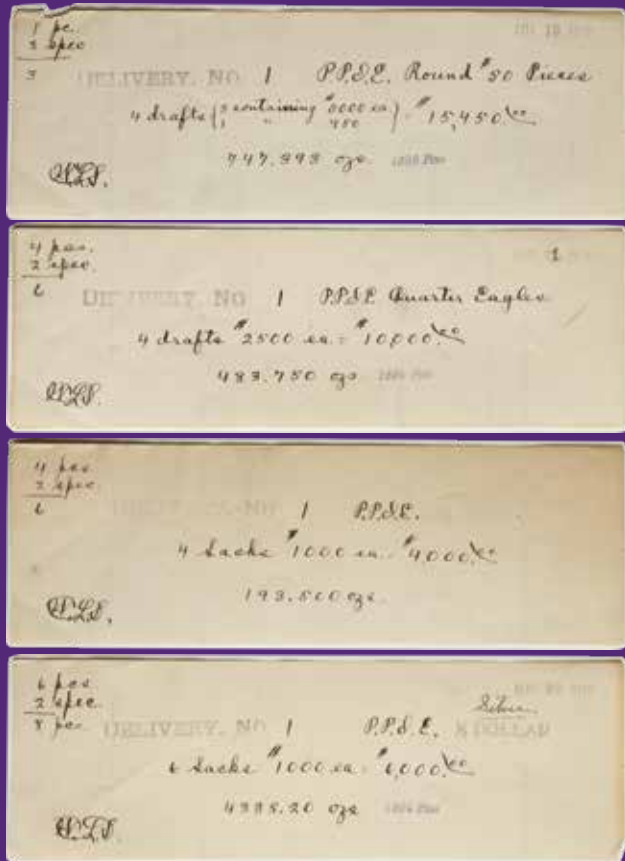 1 pc.
spec
3
DELIVERY. NO 1 P.P.I.E. Round $50 Pieces
4 drafts { 3 containing $5000 ea
1 " 450 } = $15,450.00
747.393 ozs.
4 pcs.
2 spec.
6
1
DELIVERY. NO 1 P.P.I.E. Quarter Eagles
4 drafts $2500 ea. = $10,000.00
483.750 ozs
4 pcs
2 spec.
6
DELIVERY. NO 1 P.P.I.E.
4 Sacks $1000 ea. $4000.00
193.500 ozs.
6 pcs
2 spec.
8 pc.
Silver
DELIVERY. NO 1 P.P.I.E. DOLLAR
6 Sacks $1000 ea = $6,000.00
4335.20 ozs